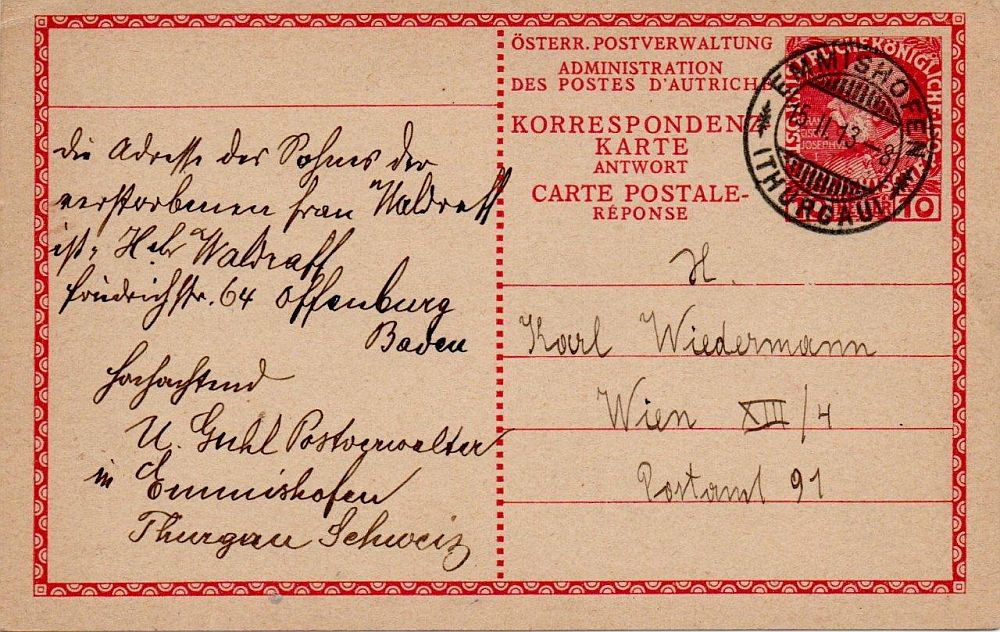 die Adresse des Sohnes der
verstorbenen Frau Waldraff
ist, Hch Waldraff
Friedrichstr. 64 Offenburg
Baden
hochachtend
U. Guhl Postverwalter
in Emmishofen
Thurgau Schweiz
ÖSTERR. POSTVERWALTUNG
ADMINISTRATION
DES POSTES D'AUTRICHE
KORRESPONDENZ
KARTE
ANTWORT
CARTE POSTALE-
RÉPONSE
EMMISHOFEN
15.II.13.–8
(THURGAU)
10
H.
Karl Wiedermann
Wien XIII/4
Postamt 91